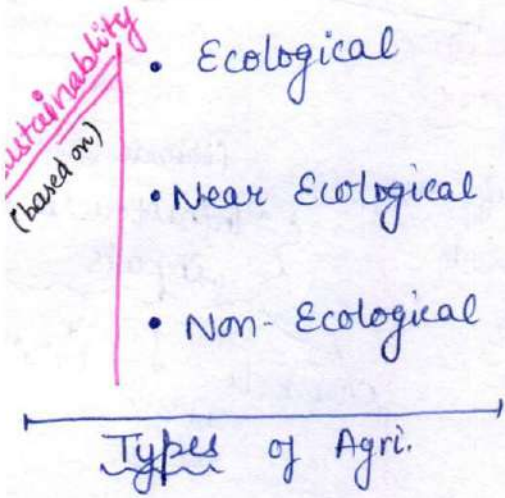 ustainablity
(based on)
• Ecological
• Near Ecological
• Non-Ecological
Types of Agri.